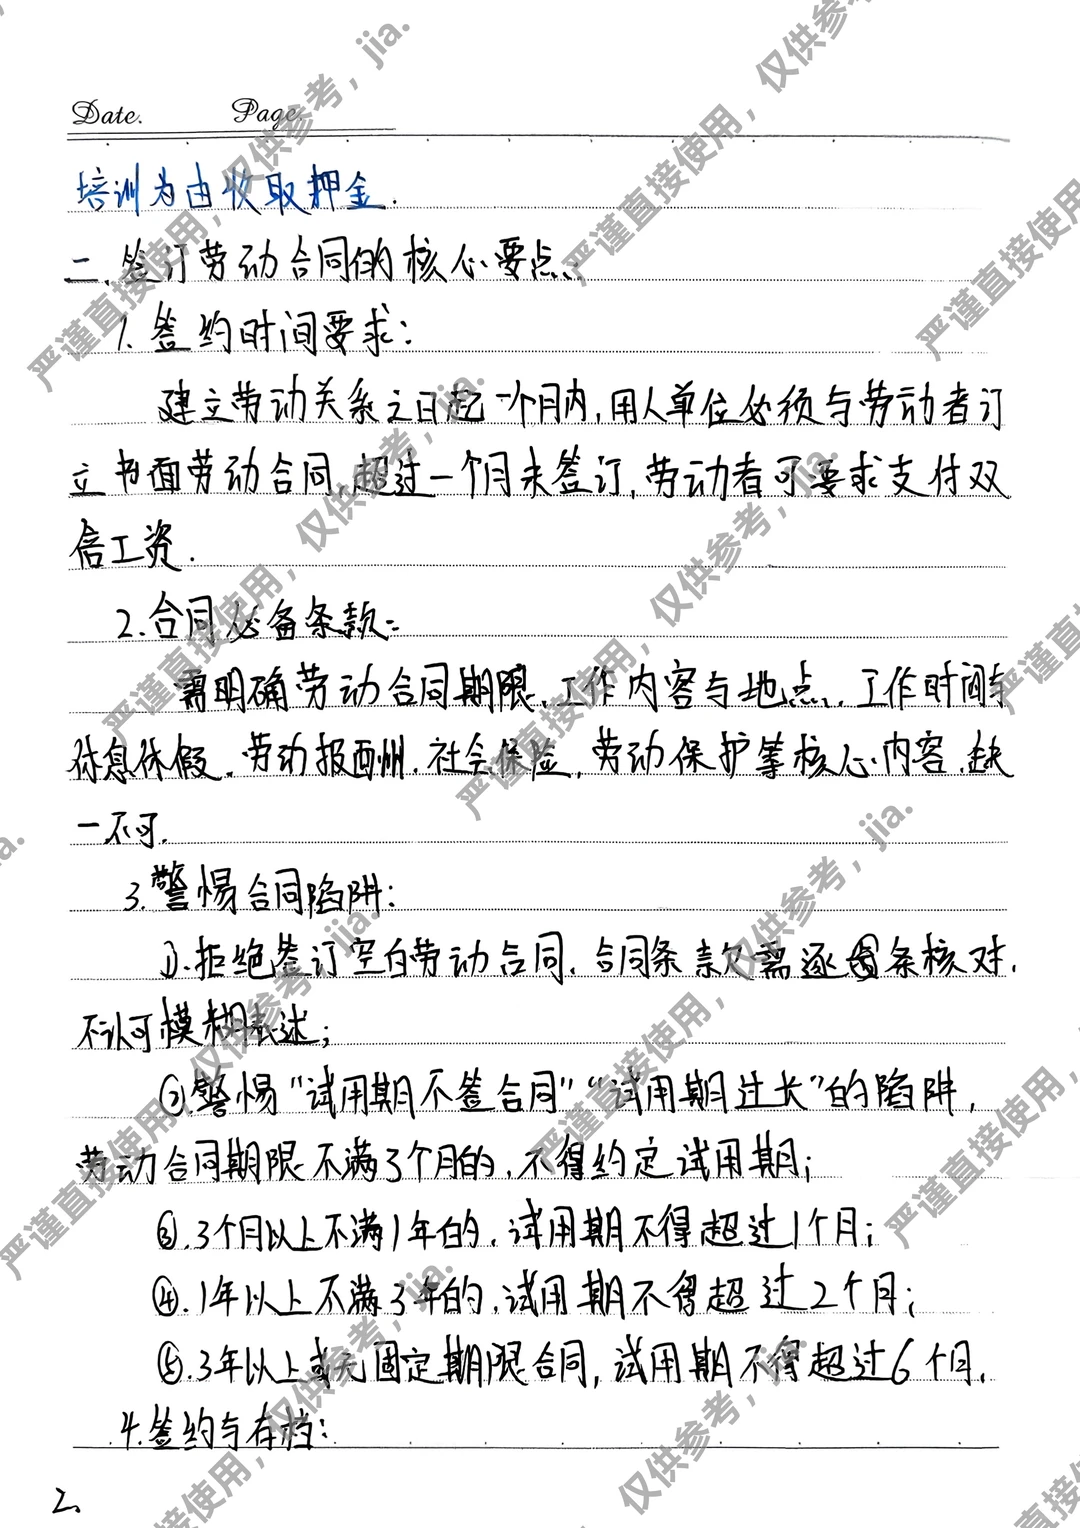 Date. Page.
培训为由收取押金.
二、签订劳动合同的核心要点:
1.签约时间要求:
建立劳动关系之日起一个月内,用人单位必须与劳动者订
立书面劳动合同,超过一个月未签订,劳动者可要求支付双
倍工资.
2.合同必备条款:
需明确劳动合同期限、工作内容与地点、工作时间与
休息休假、劳动报酬、社会保险、劳动保护等核心内容,缺
一不可.
3.警惕合同陷阱:
①.拒绝签订空白劳动合同,合同条款需逐条核对,
不认可模糊表述;
②警惕"试用期不签合同""试用期过长"的陷阱,
劳动合同期限不满3个月的,不得约定试用期;
③.3个月以上不满1年的,试用期不得超过1个月;
④.1年以上不满3年的,试用期不得超过2个月;
⑤.3年以上或无固定期限合同,试用期不得超过6个月.
4.签约与存档:
2.
严谨直接使用,仅供参考,jia.